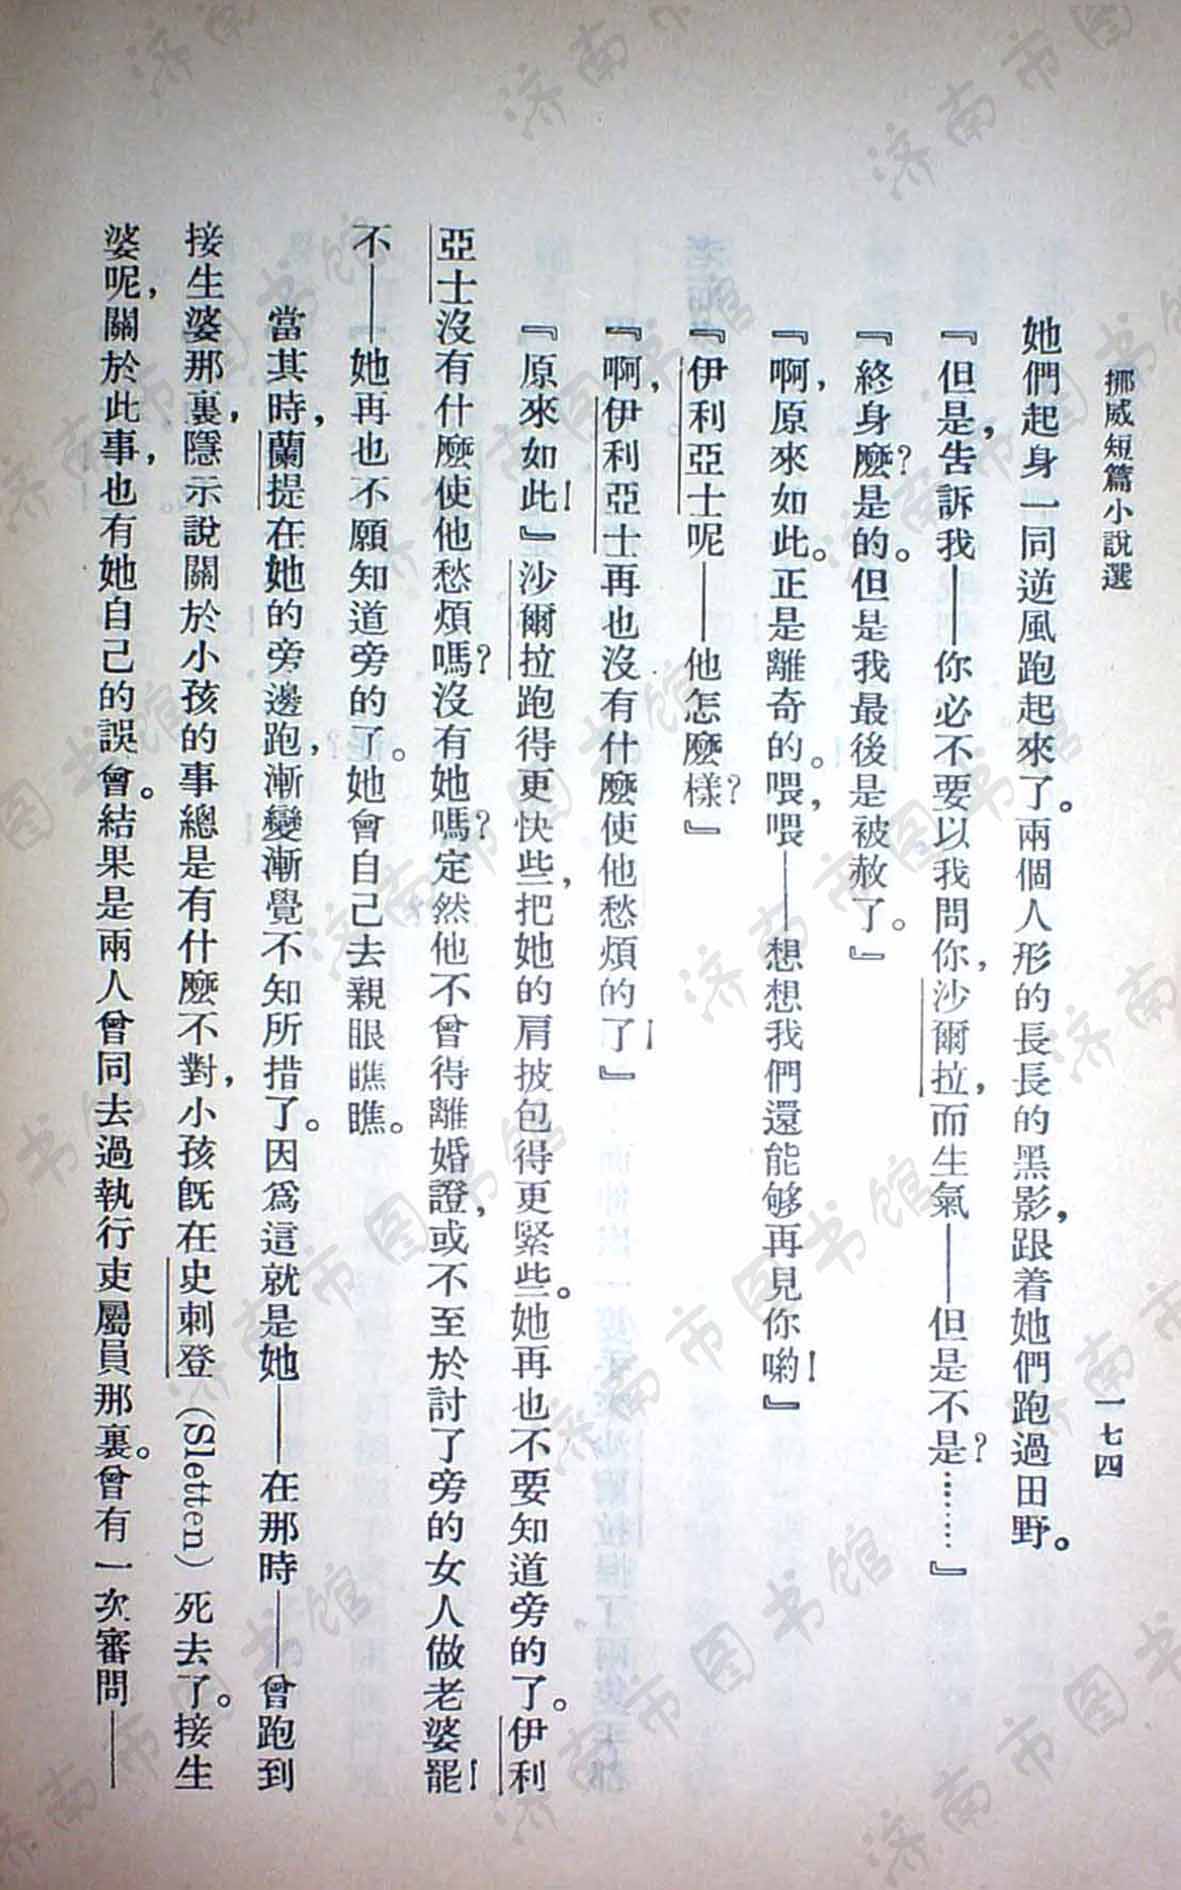 挪威短篇小說選
一七四
她們起身一同逆風跑起來了。兩個人形的長長的黑影，跟着她們跑過田野。
『但是，告訴我——你必不要以我問你，沙爾拉，而生氣——但是不是？………』
『終身麼？是的。但是我最後是被赦了。』
『啊，原來如此。正是離奇的。喂，喂——想想我們還能够再見你喲！』
『伊利亞士呢——他怎麼樣？』
『啊，伊利亞士再也沒有什麼使他愁煩的了！』
『原來如此！』沙爾拉跑得更快些，把她的肩披包得更緊些。她再也不要知道旁的了。伊利
亞士沒有什麼使他愁煩嗎？沒有她嗎？定然他不曾得離婚證，或不至於討了旁的女人做老婆罷！
不——她再也不願知道旁的了。她會自己去親眼瞧瞧。
當其時，蘭提在她的旁邊跑，漸變漸覺不知所措了。因爲這就是她——在那時——曾跑到
接生婆那裏，隱示說關於小孩的事總是有什麼不對，小孩旣在史刺登（Sletten）死去了。接生
婆呢，關於此事，也有她自己的誤會。結果是兩人曾同去過執行吏屬員那裏。曾有一次審問——
济南市图书馆